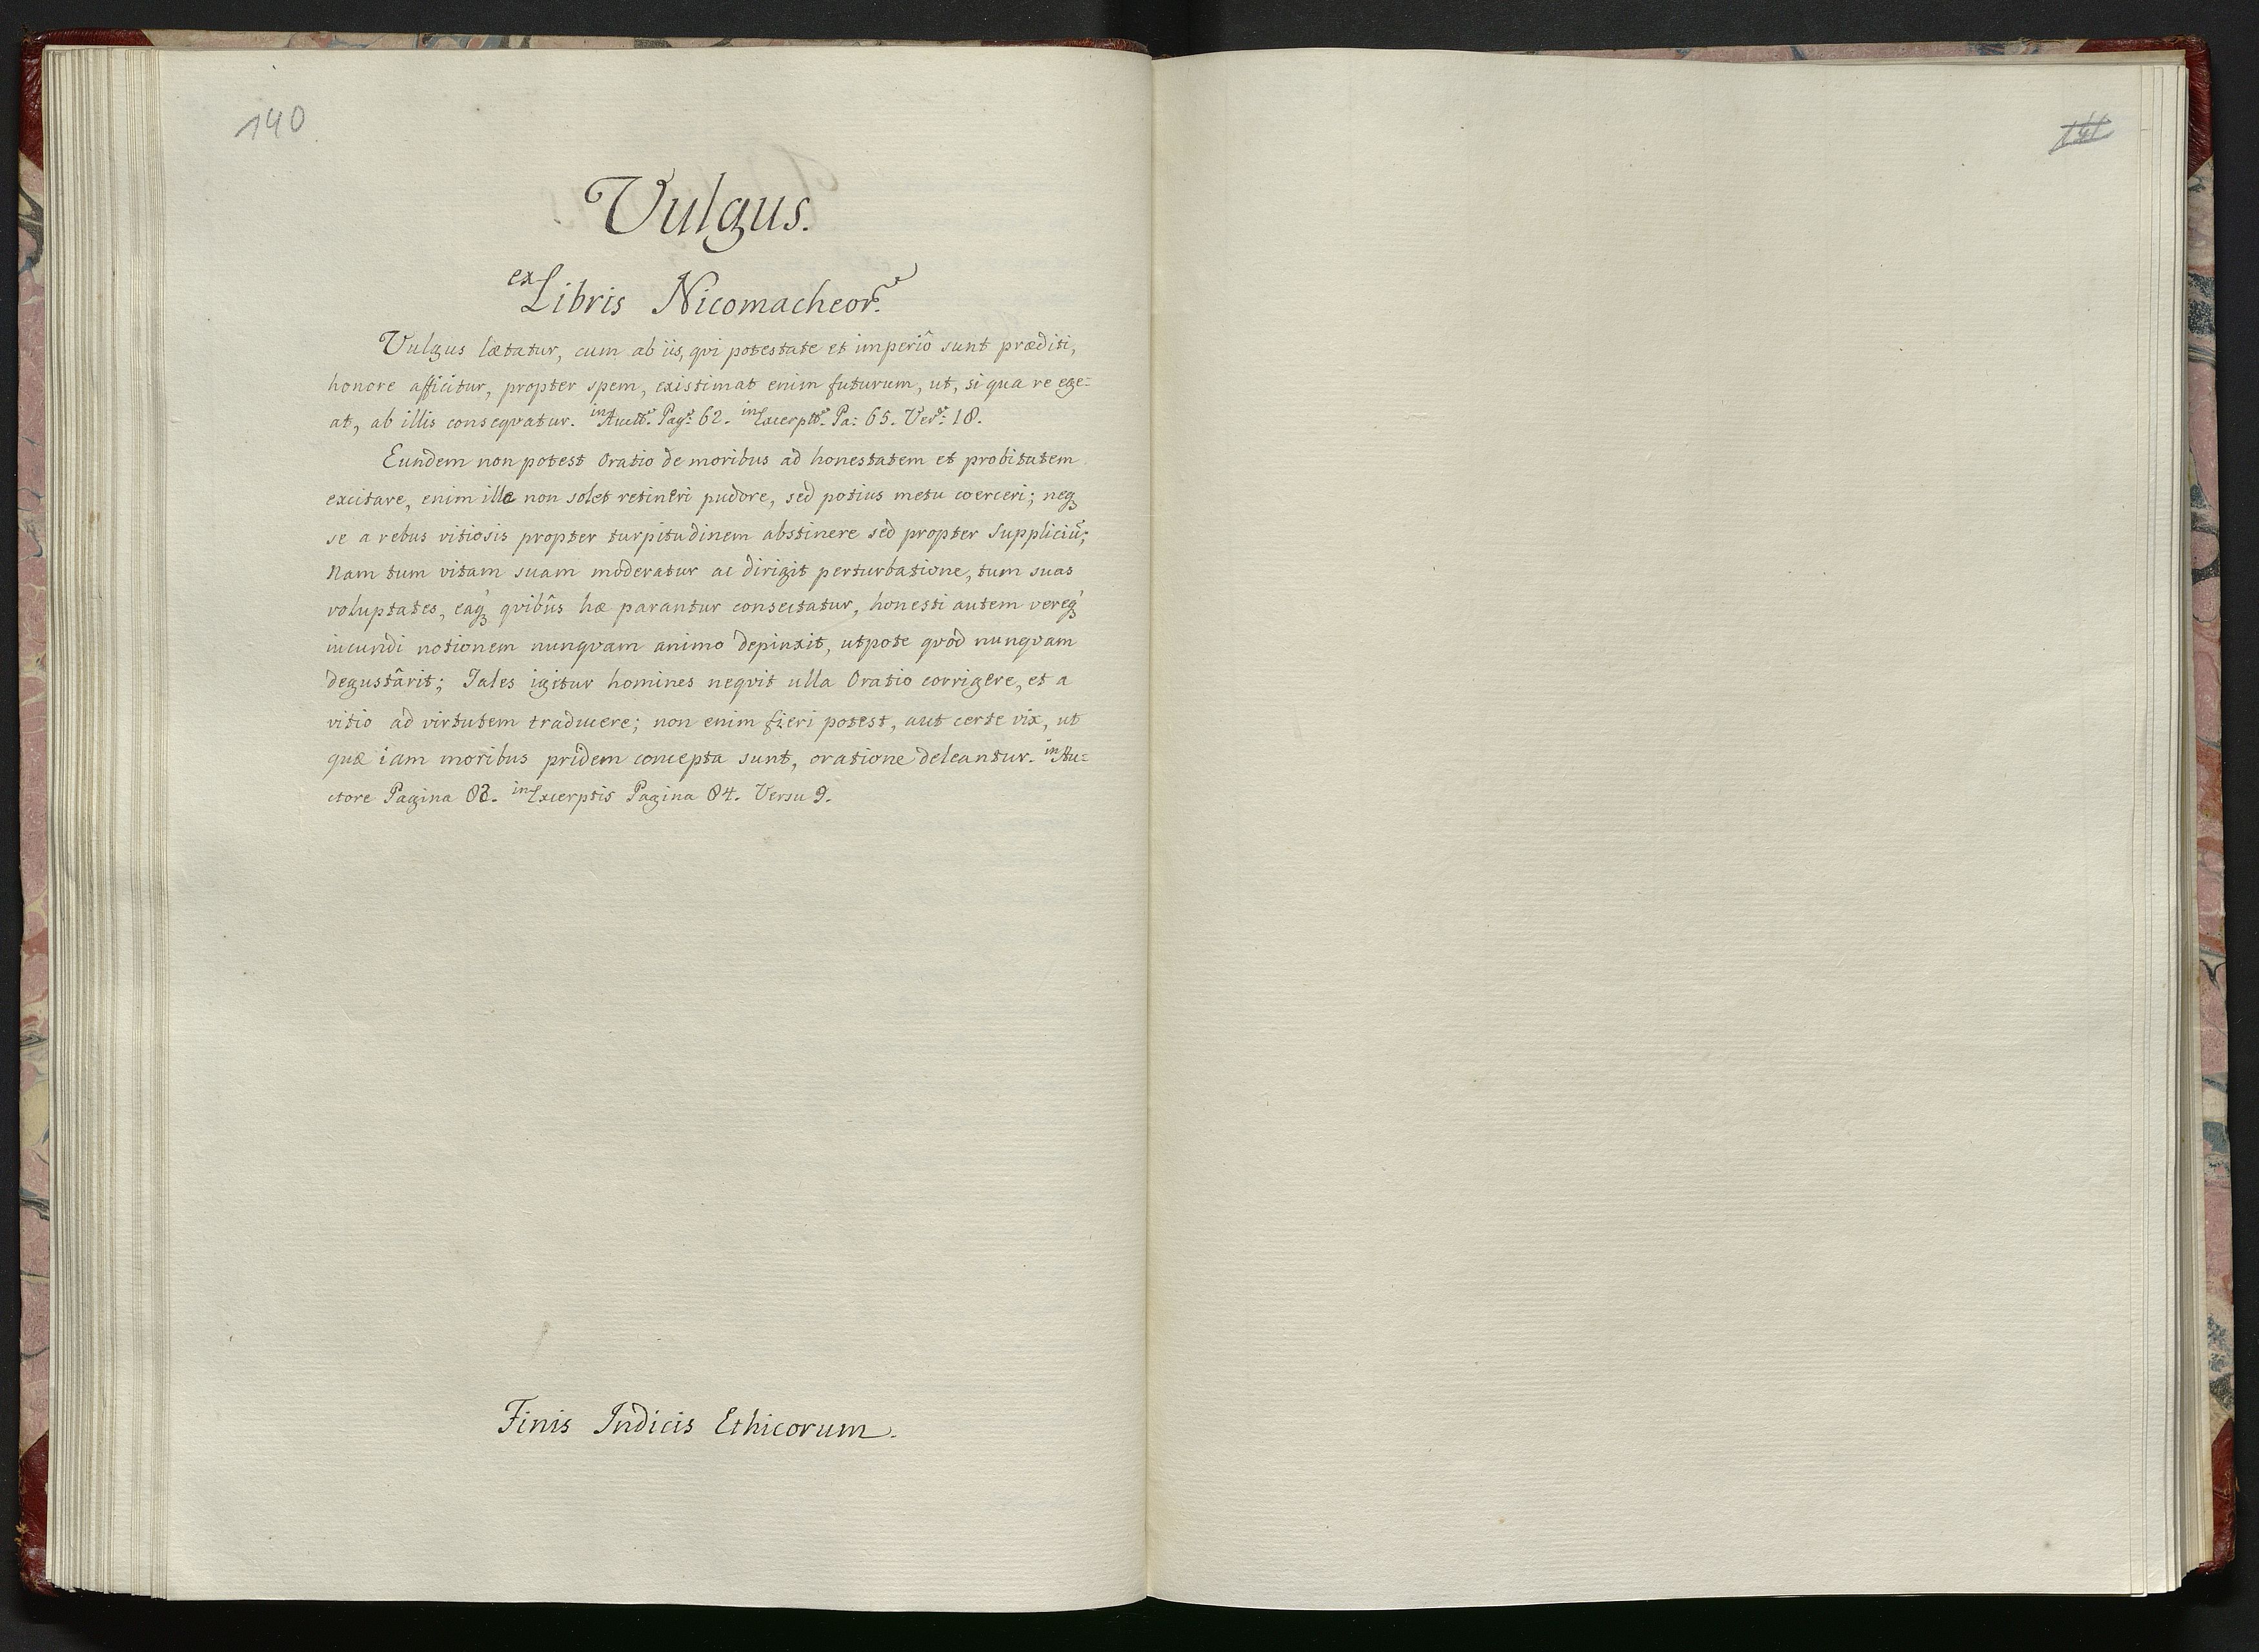 140
Vulgus.
ex Libris Nicomacheor.
Vulgus lætatur, cum ab iis, qvi potestate et imperiô sunt præditi,
honore afficitur, propter spem, existimat enim futurum, ut, si qua re ege=
at, ab illis conseqvatur. in Auctr: Pag: 62. in Excerptis: Pa: 65. Ver: 18.
Eundem non potest Oratio de moribus ad honestatem et probitatem
excitare, enim ille non solet retineri pudore, sed potius metu coerceri; neq₃
se a rebus vitiosis propter turpitudinem abstinere sed propter Suppliciũ;
Nam tum vitam suam moderatur ac dirigit perturbatione, tum suas
voluptates, eaq₃ qvibûs hæ parantur consectatur, honesti autem vereq₃
iucundi notionem nunqvam animo depinxit, utpote qvòd nunqvam
degustârit; Tales igitur homines neqvit ulla Oratio corrigere, et a
vitio ad virtutem traducere; non enim fieri potest, aut certe vix, ut
quæ iam moribus pridem concepta sunt, oratione deleantur. in Au=
ctore Pagina 83. in Excerptis Pagina 84. Versu 9.
Finis Indicis Ethicorum.
141